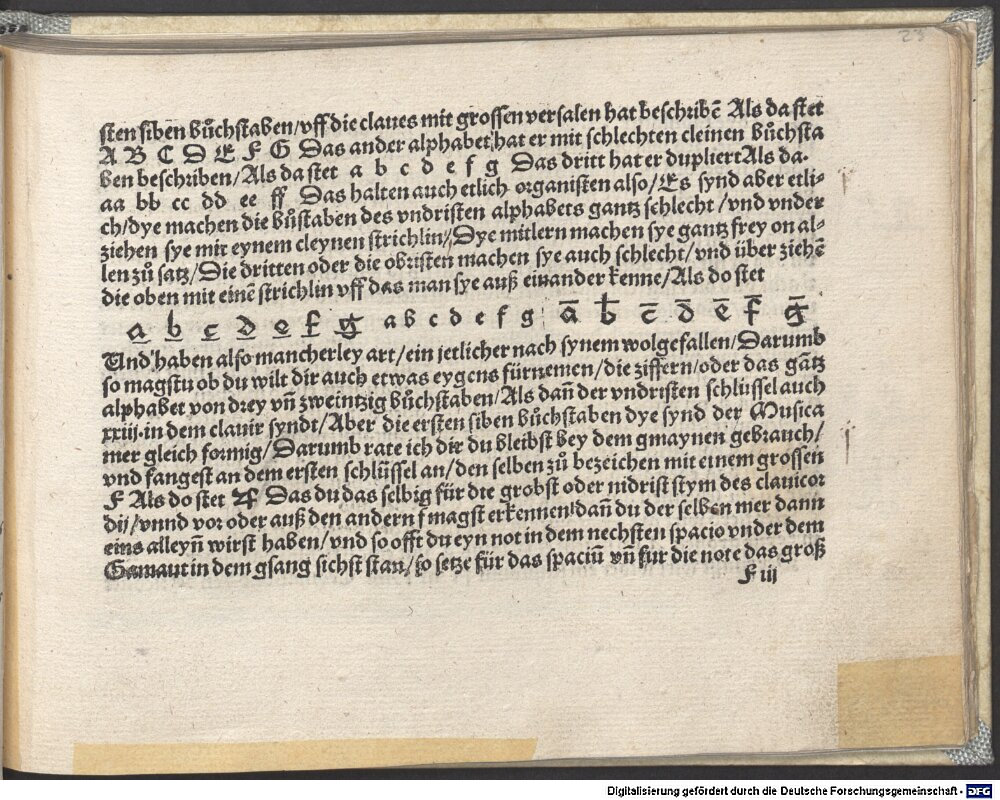 23
sten siben bůchstaben/vff die claues mit grossen versalen hat beschribẽ Als da stet
A B C D E F G Das ander alphabet hat er mit schlechten cleinen bůchsta
ben beschriben/Als da stet a b c d e f g Das dritt hat er dupliert Als da.
aa bb cc dd ee ff Das halten auch etlich organisten also/Es synd aber etli⸗
ch/dye machen die bůstaben des vndristen alphabets gantz schlecht/vnd vnder
ziehen sye mit eynem cleynen strichlin/Dye mitlern machen sye gantz frey on al⸗
len zů satz/Die dritten oder die obristen machen sye auch schlecht/vnd über ziehẽ
die oben mit einẽ strichlin vff das man sye auß einander kenne/Als do stet
a̲ b̲ c̲ d̲ e̲ f̲ g̲ a b c d e f g ā b̄ c̄ d̄ ē f̄ ḡ
Und haben also mancherley art/ein jetlicher nach synem wolgefallen/Darumb
so magstu ob du wilt dir auch etwas eygens fürnemen/die ziffern/oder das gãtz
alphabet von drey vñ zweintzig bůchstaben/Als dañ der vndristen schlüssel auch
xxiij.in dem clavir syndt/Aber die ersten siben bůchstaben dye synd der Musica
mer gleich formig/Darumb rate ich dir du bleibst bey dem gmaynen gebrauch/
vnd fangest an dem ersten schlüssel an/den selben zů bezeichen mit einem grossen
F Als do stet F Das du das selbig für die grobst oder nidrist stym des clauicor
dij/vnnd vor oder auß den andern f magst erkennen dañ du der selben mer dann
eins alleyñ wirst haben/vnd so offt du eyn not in dem nechsten spacio vnder dem
Gamaut in dem gsang sichst stan/so setze für das spaciũ vñ für die note das groß
F iij
Digitalisierung gefördert durch die Deutsche Forschungsgemeinschaft - DFG